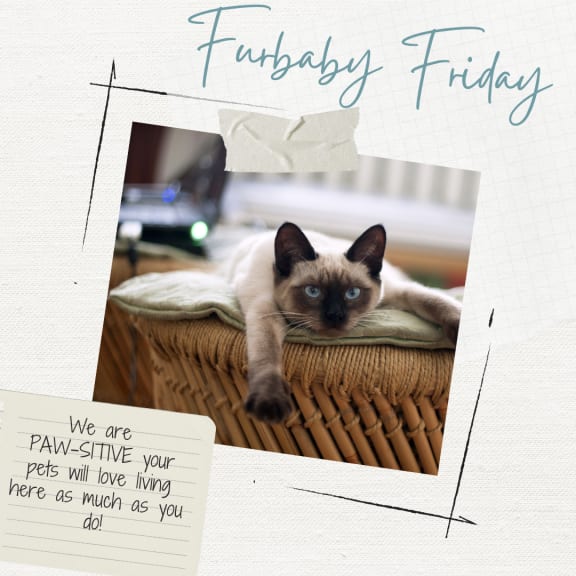 Furbaby Friday
We are
PAW-SITIVE your
pets will love living
here as much as you
do!